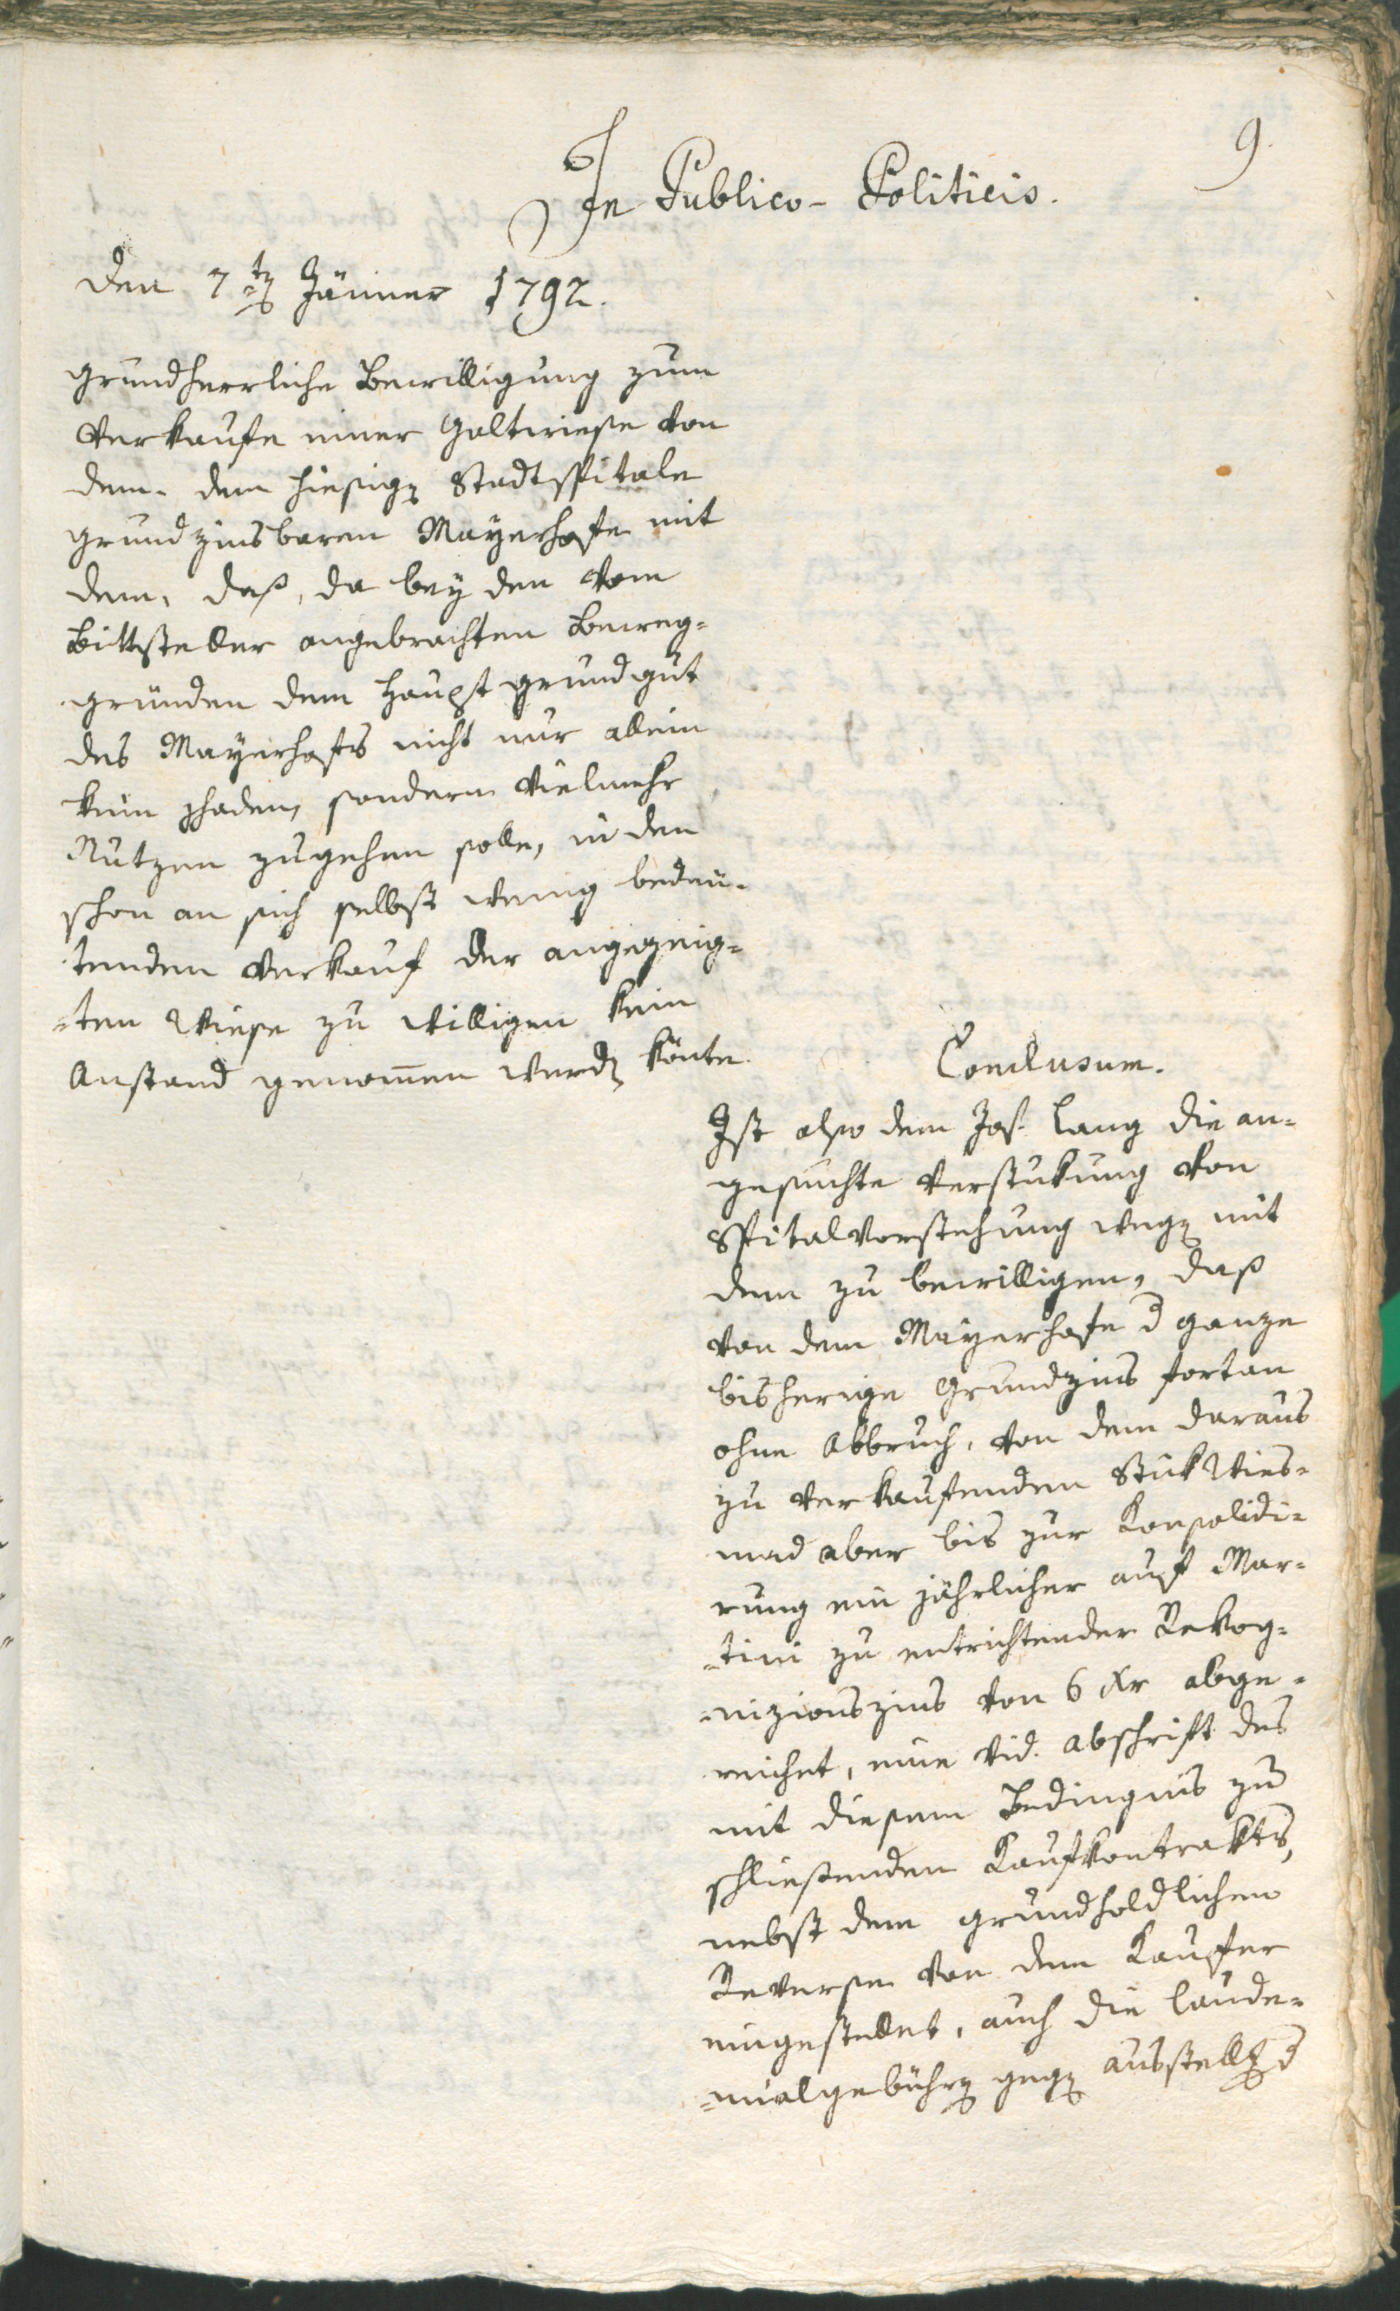 9.
In Publico-Politicis.
Den 7ten Jänner 1792.
grundherrliche Bewilligung zum
Verkaufe einer Galtwiese von
dem- dem hiesigen Stadtspitale
grundzinsbaren Mayerhofe mit
dem, daß, da bey den vom
Bittsteller angebrachten Beweg=
gründen dem Hauptgrundgut
des Mayerhofs nicht nur allein
kein schaden, sondern vielmehr
Nutzen zugehen solle, in den
schon an sich selbst wenig bedeu=
tenden Verkauf der angezeig=
=ten Wiese zu willigen kein
Anstand genommen werden könte.
Conclusum.
Ist also dem Jos. Lang die an=
gesuchte Verstukung von
Spitalvorstehung wegen mit
dem zu bewilligen, daß
von dem Mayerhofe d ganze
bisherige Grundzins fortan
ohne Abbruch, von dem daraus
zu verkaufenden Stuk Wies=
mad aber bis zur Konsolidi=
rung ein jährlicher auf Mar=
=tini zu entrichtender Rekog=
=nizionszins von 6 Xr abge=
reichet, eine vid. Abschrift des
mit diesem Bedingnis zu
schliessenden Kaufkontrakts,
nebst dem grundholdlichen
Reversen von dem Kaufer
eingestellet, auch die Laude=
=mialgebühren gegen Ausstellg d